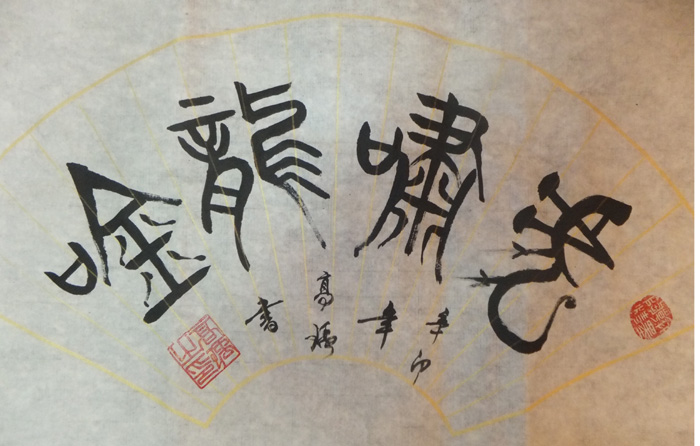 虎嘯龍唫
辛卯
年
高
書